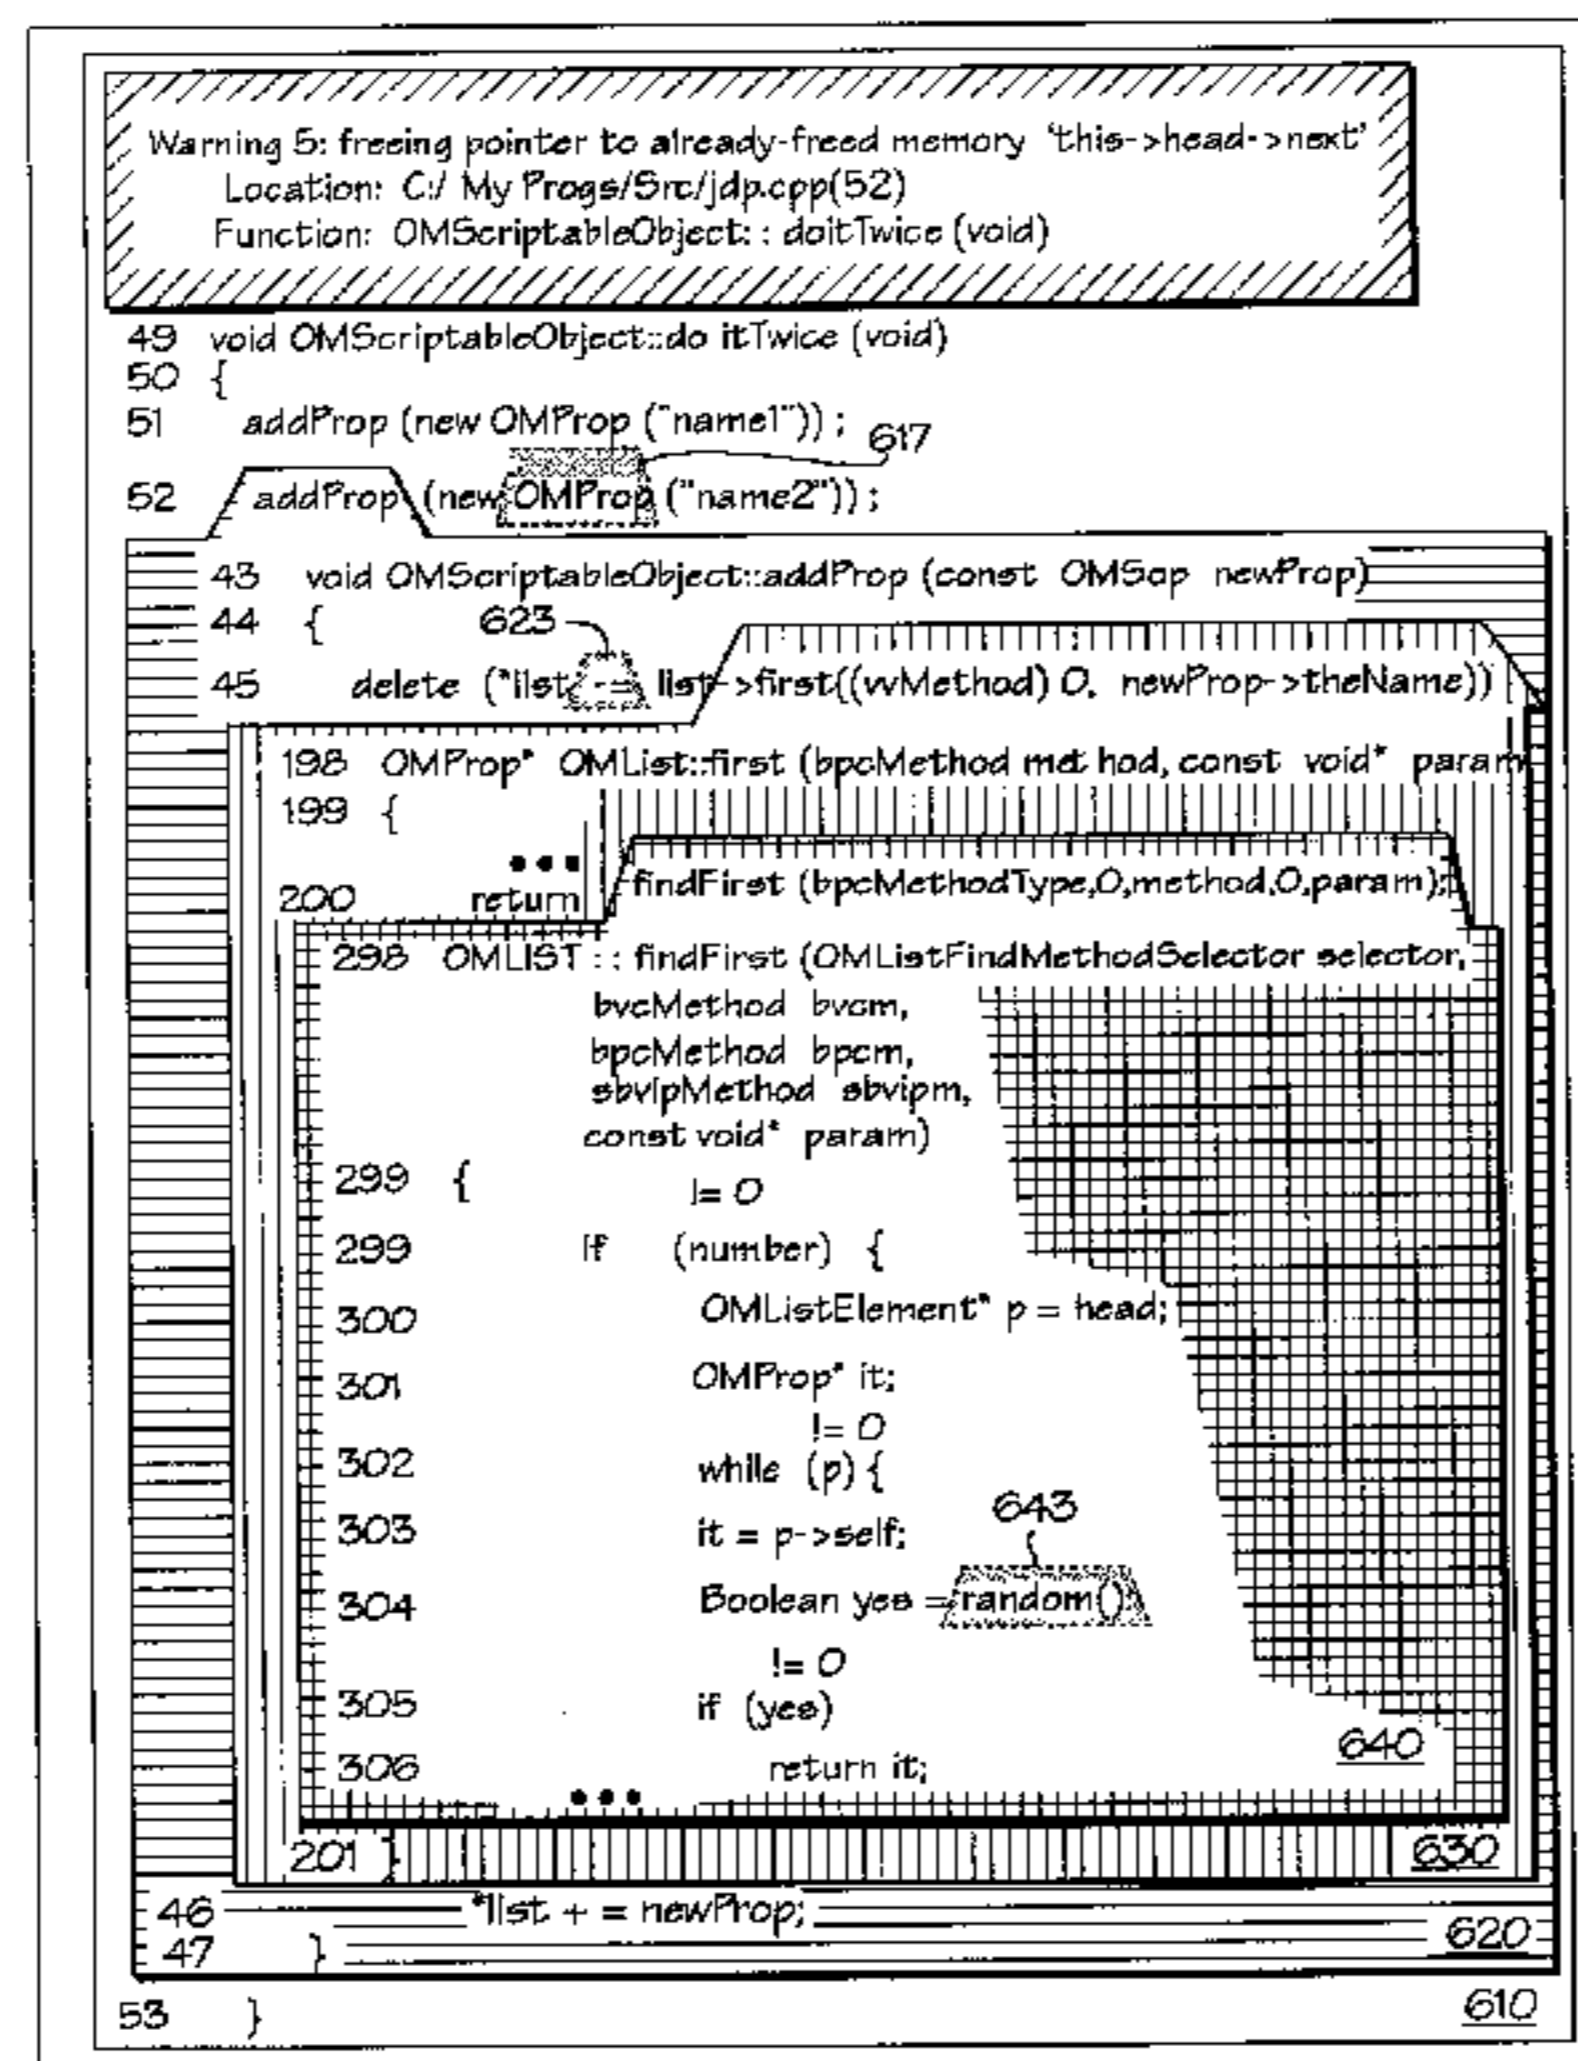 Warning 5: freeing pointer to already-freed memory 'this->head->next'
Location: C:/ My Progs/Src/jdp.cpp(52)
Function: OMScriptableObject: : doitTwice (void)
49 void OMScriptableObject::do itTwice (void)
50 {
51 addProp (new OMProp ("name1")) ;
617
52 addProp (new OMProp ("name2")) ;
43 void OMScriptableObject::addProp (const OMSop newProp)
44 { 623
45 delete (*list -= list->first((vvMethod) 0, newProp->theName))
198 OMProp* OMList::first (bpcMethod met hod, const void* param
199 {
•••
200 return findFirst (bpcMethodType,0,method,0,param);
298 OMLIST : : findFirst (OMListFindMethodSelector selector,
bvcMethod bvcm,
bpcMethod bpcm,
sbvipMethod sbvipm,
const void* param)
299 {
!= 0
299 If (number) {
300 OMListElement* p = head;
301 OMProp* it;
!= 0
302 while (p) {
303 it = p->self;
643
304 Boolean yes = random()
!= 0
305 if (yes)
640
306 return it;
•••
201 } 630
46 *list + = newProp;
620
47 }
53 } 610